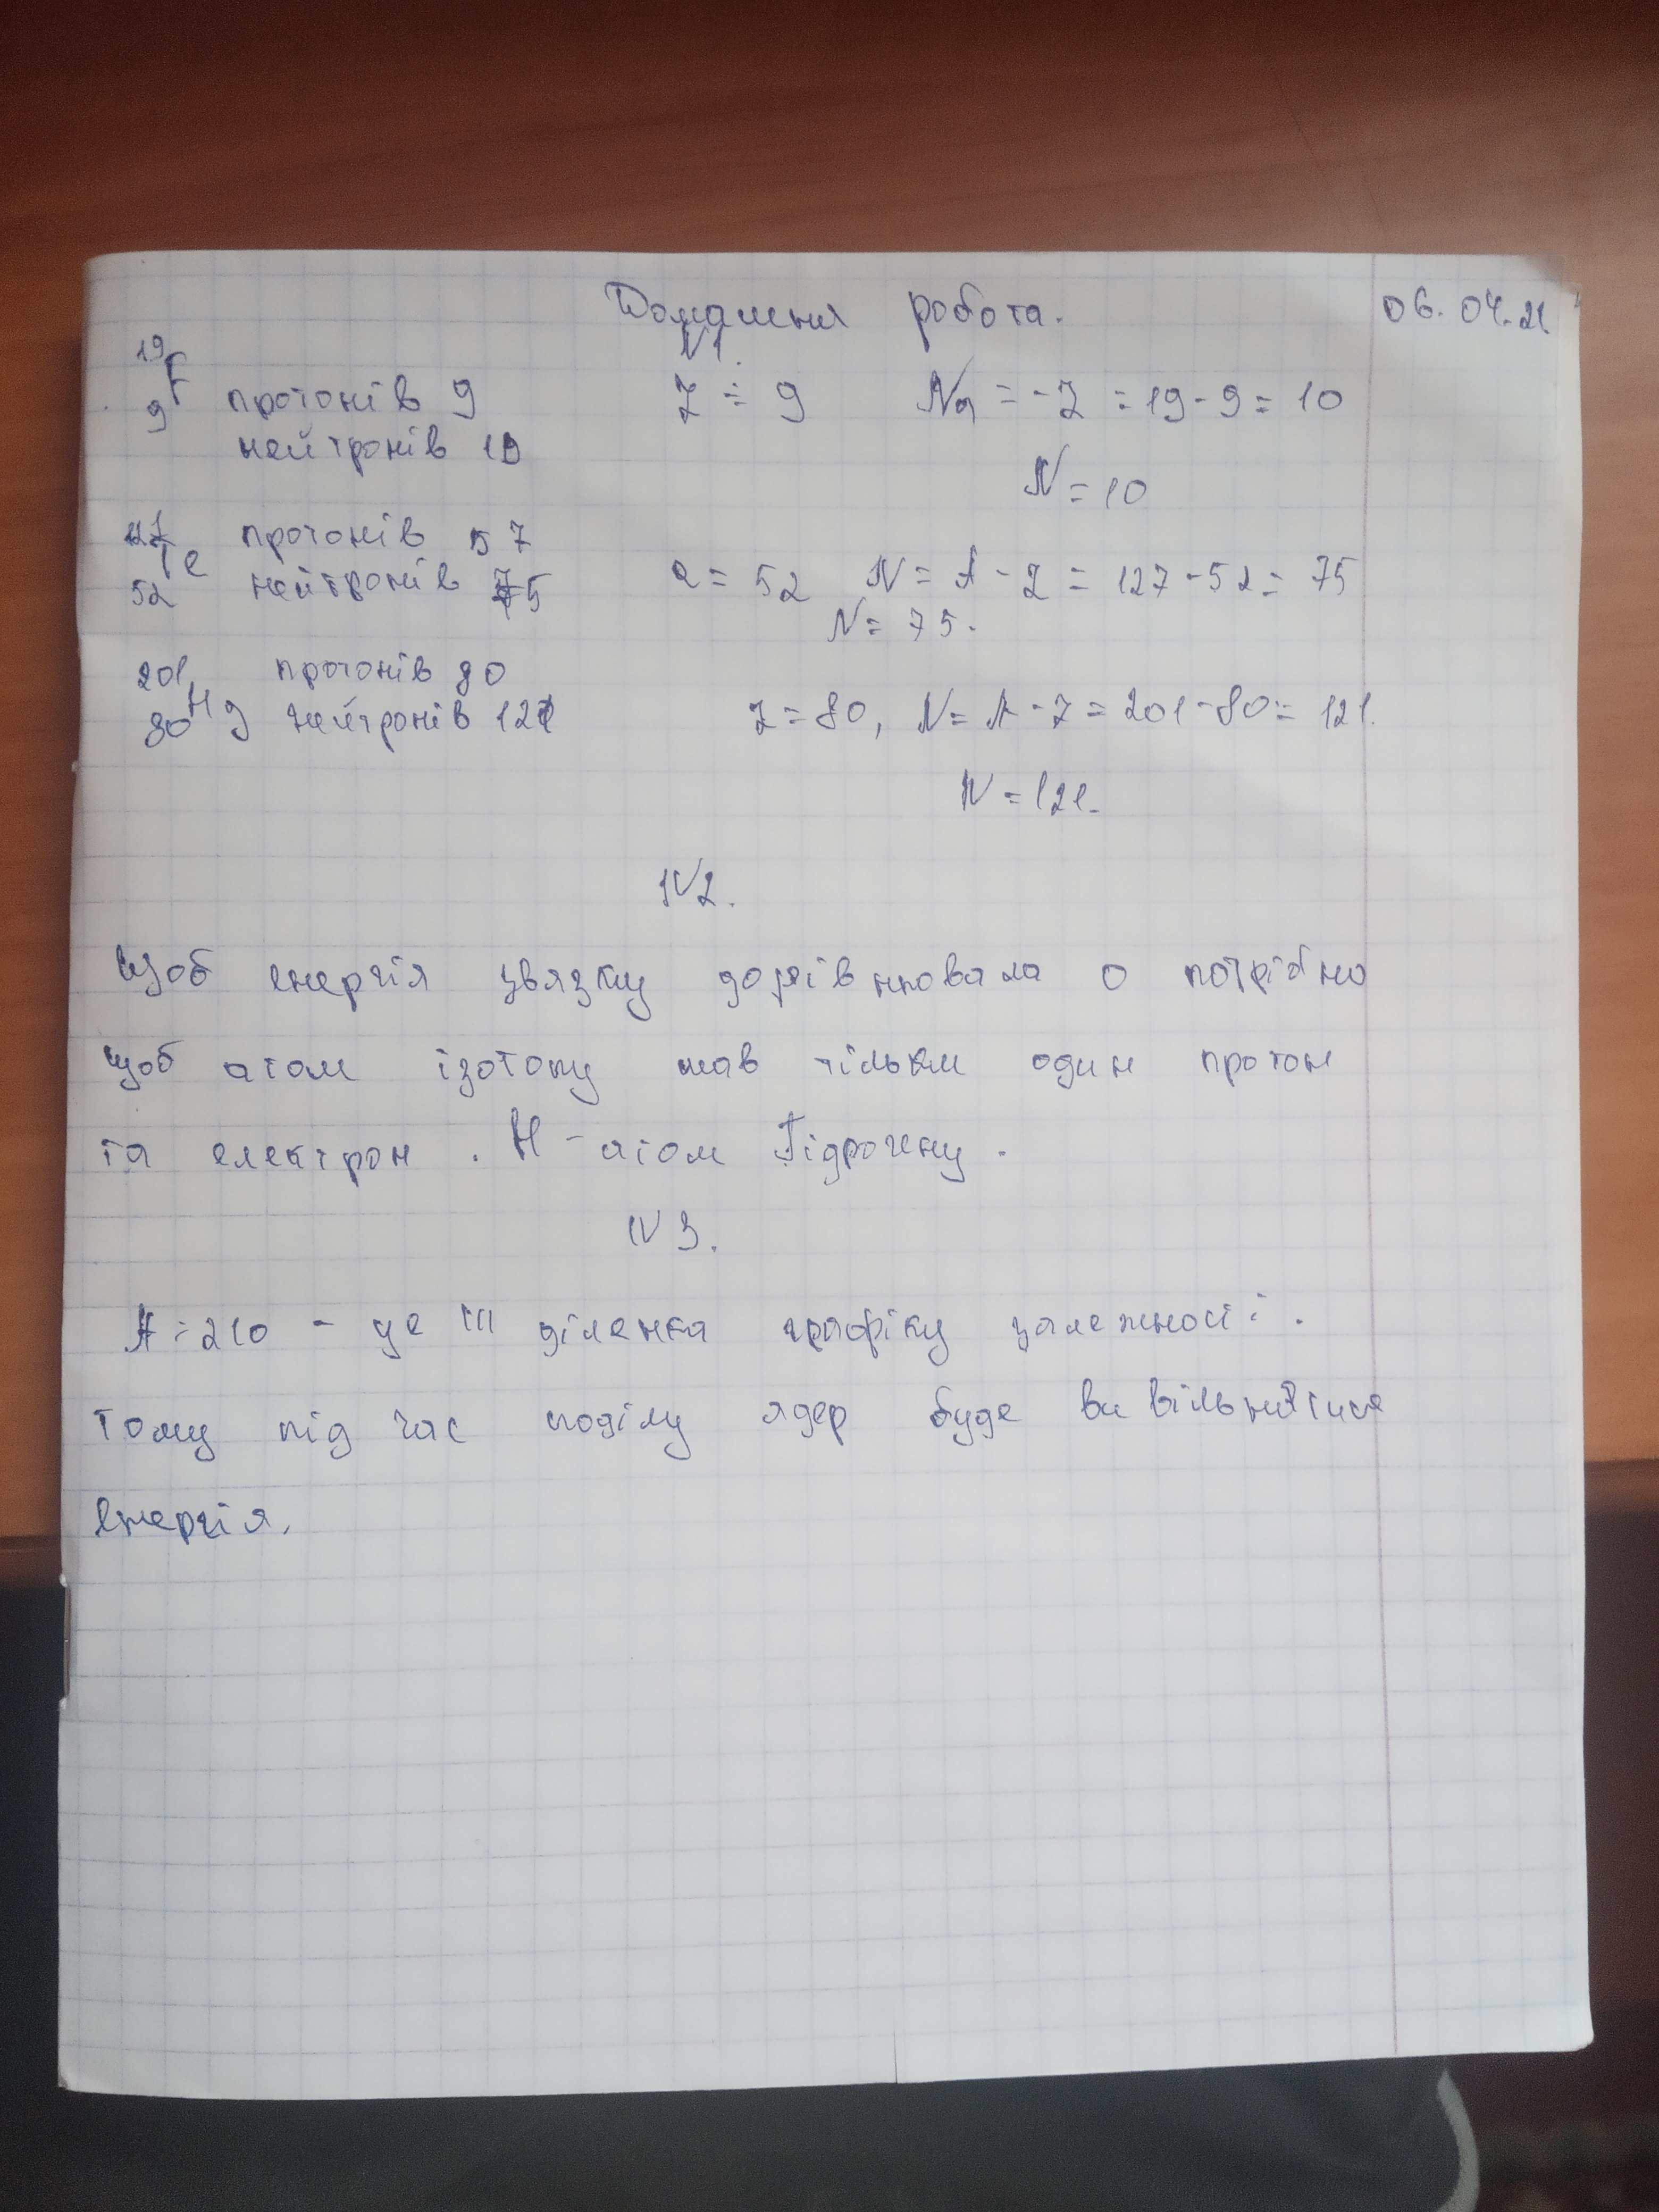 Домашня робота. 06.04.21
N1.
19
F протонів 9 Z = 9 Nn = -Z = 19-9 = 10
9
нейтронів 10
N = 10
127 протонів 57
Te
52 нейтронів 75 e = 52 N = A - Z = 127-52 = 75
N = 75.
201 протонів 80
Hg
80 нейтронів 121 Z = 80, N = A - Z = 201-80 = 121.
N = 121.
N2.
Щоб енергія звязку дорівнювала 0 потрібно
щоб атом ізотопу мав тільки один протон
та електрон. H - атом Гідрогену.
N3.
A = 210 - це III ділянка графіку залежності.
Тому під час поділу ядер буде вивільнятися
енергія.